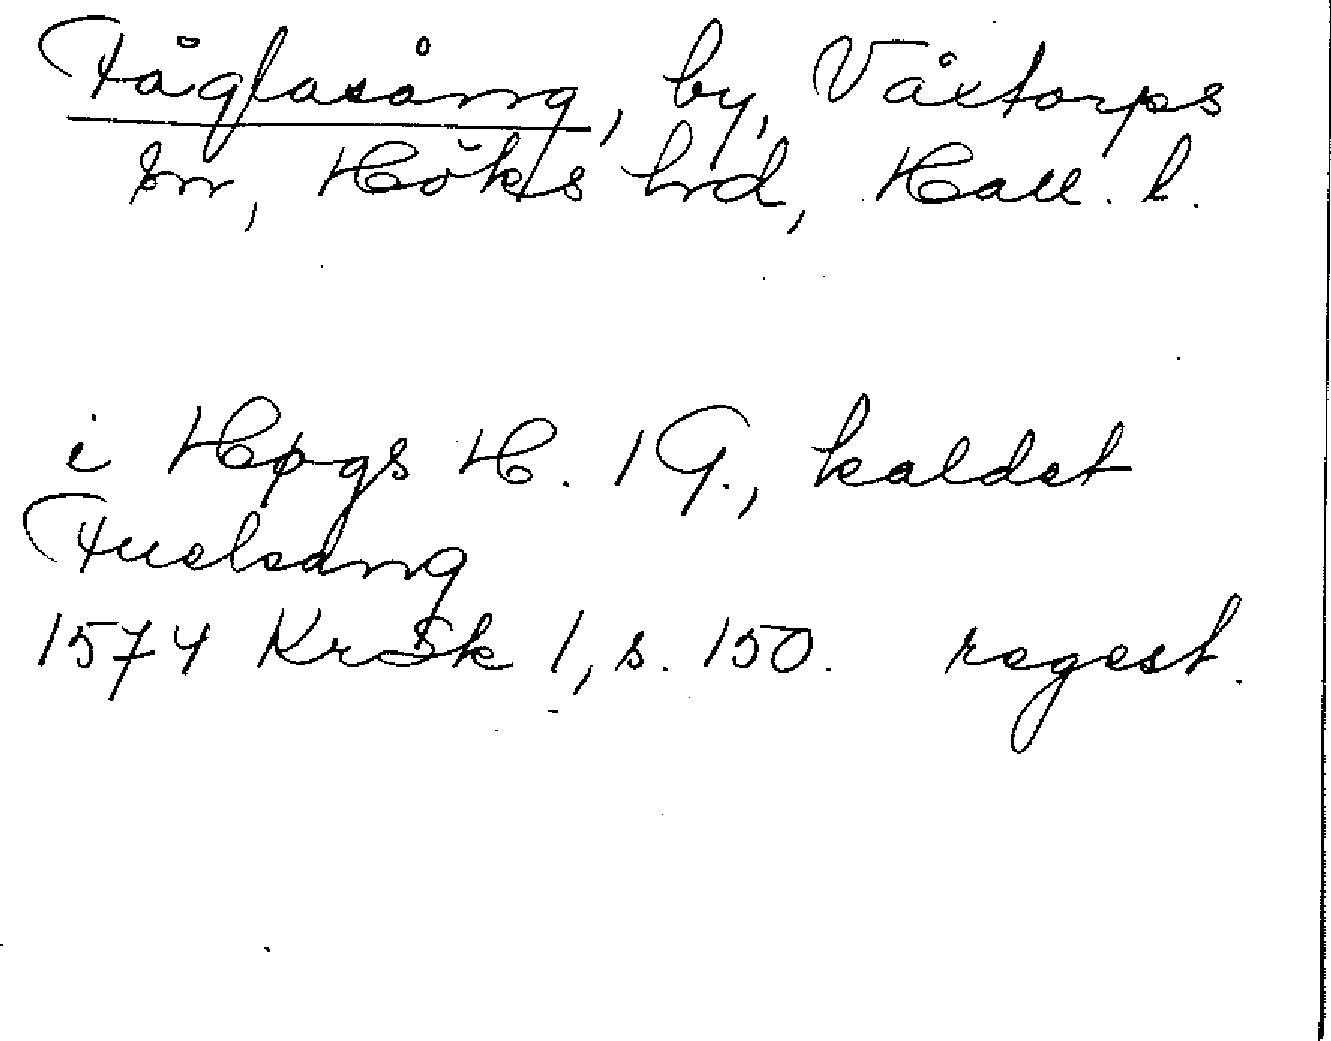 Fåglasång, by, Våxtorps
sn, Höks hrd, Hall. l.
i Høgs H. 1 G., kaldet
Fuelsang
1574 KrSk 1, s. 150. regest.